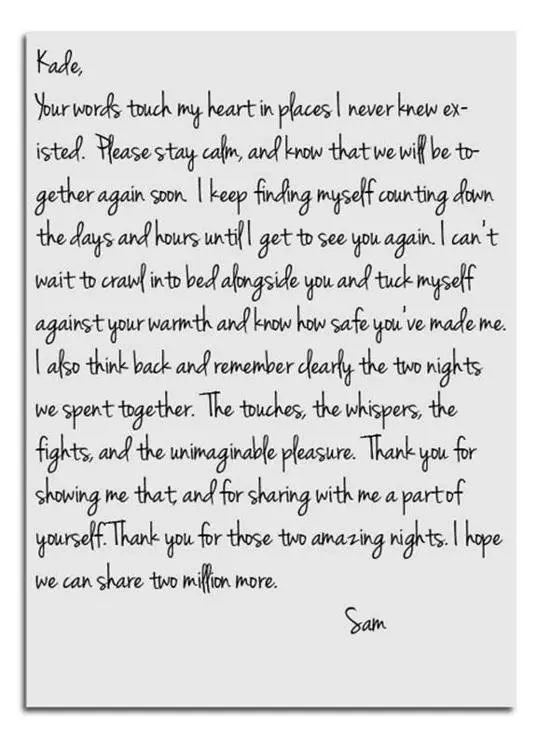 Kade,
Your words touch my heart in places I never knew ex-
isted. Please stay calm, and know that we will be to-
gether again soon. I keep finding myself counting down
the days and hours until I get to see you again. I can't
wait to crawl into bed alongside you and tuck myself
against your warmth and know how safe you've made me.
I also think back and remember clearly the two nights
we spent together. The touches, the whispers, the
fights, and the unimaginable pleasure. Thank you for
showing me that, and for sharing with me a part of
yourself. Thank you for those two amazing nights. I hope
we can share two million more.
Sam